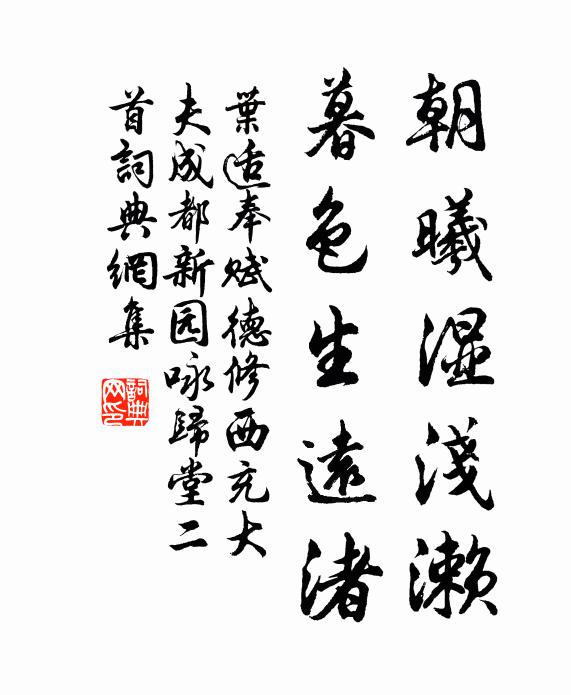 朝曦湿淺濑
暮色生遠渚
葉适奉赋德修西充大
夫成都新园咏歸堂二
首詞典網集
詞典网印